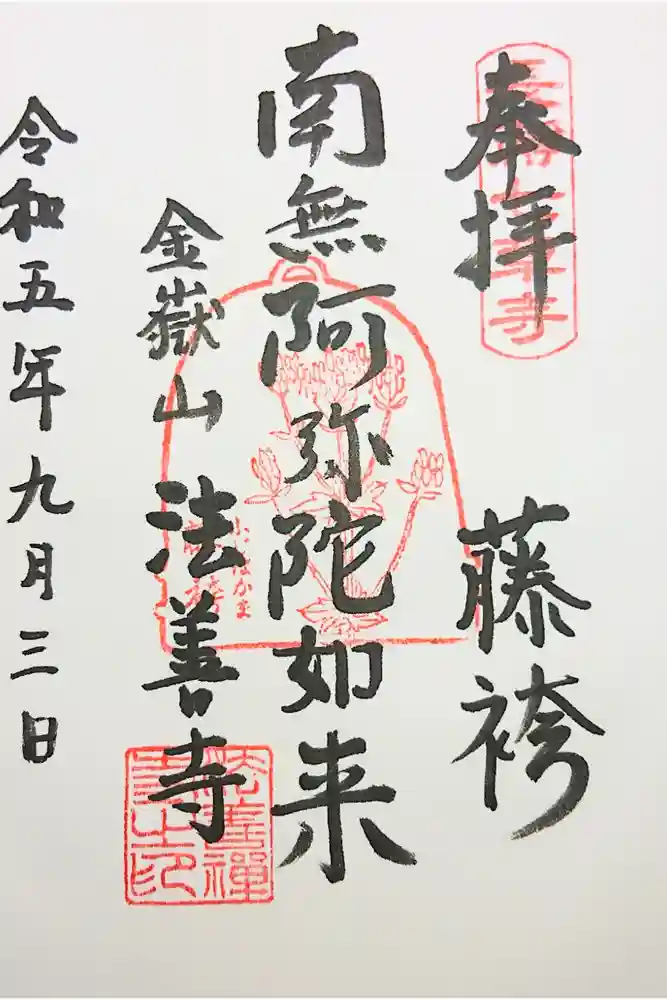 奉拝
藤袴
南無阿弥陀如来
金嶽山
法善寺
令和五年九月三日
ふじばかま
藤袴